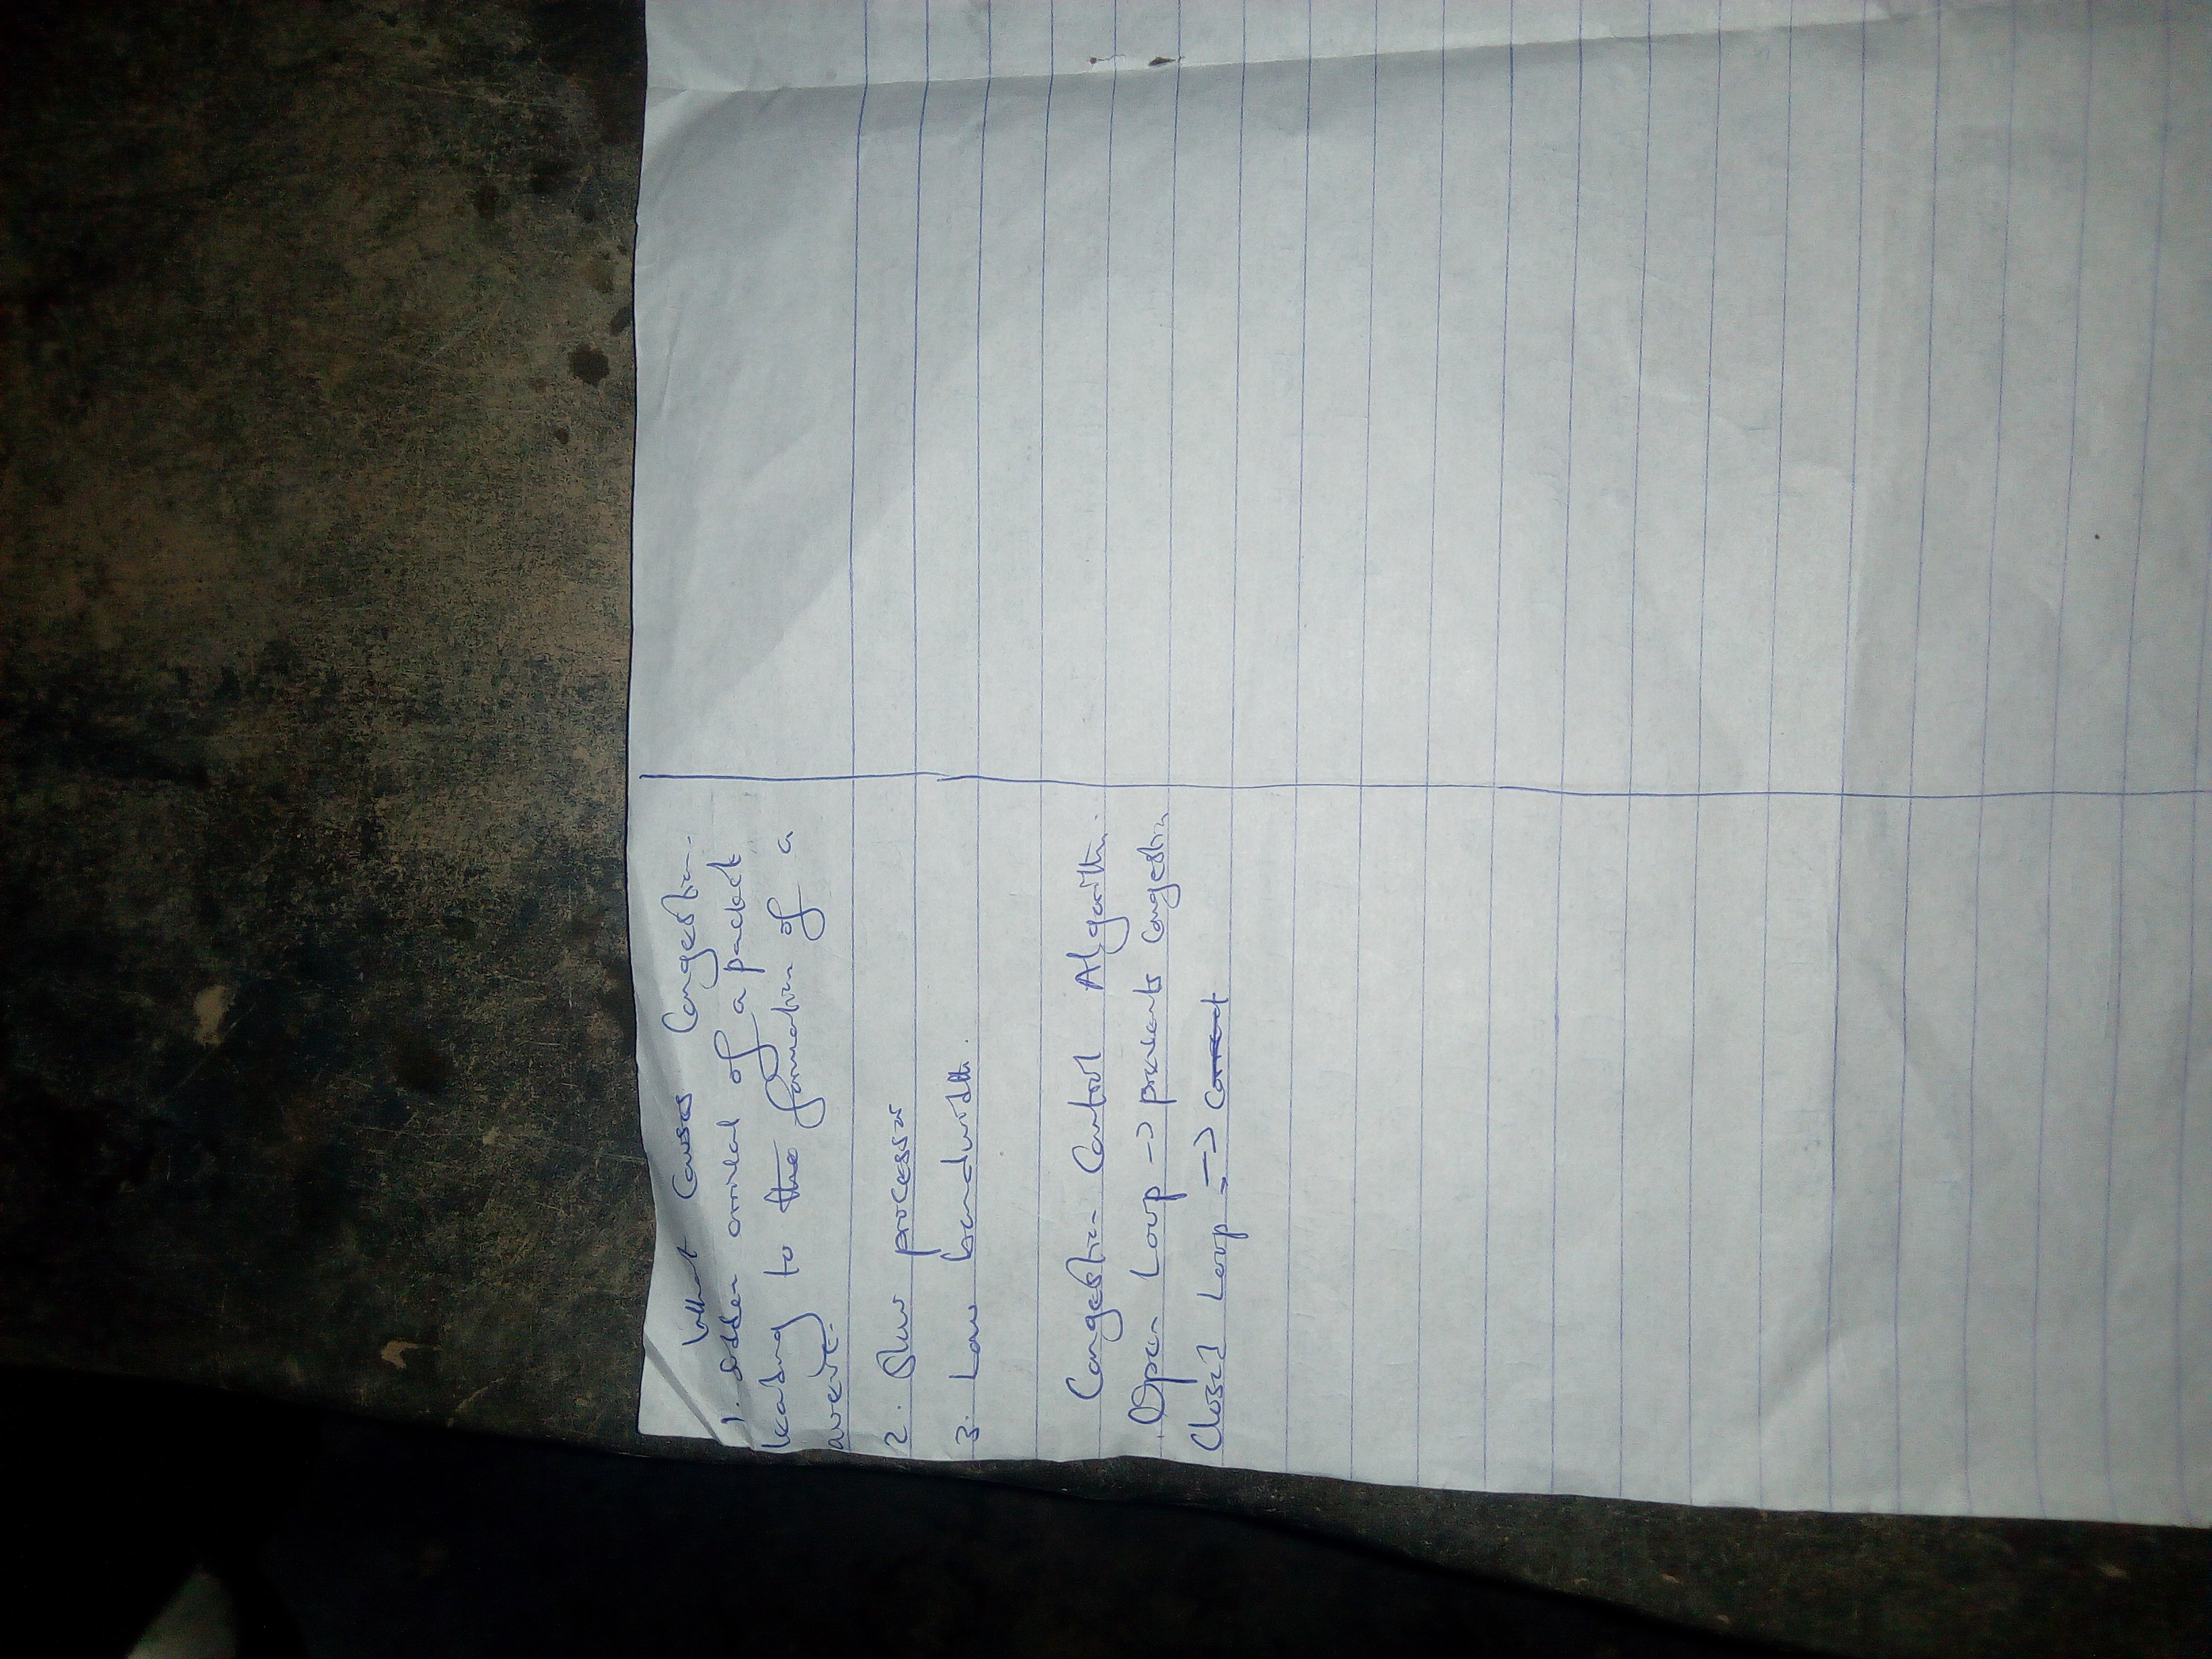 What Causes Congestion.
1. sudden arrival of a packet
leading to the formation of a
2. Slow processor
3. Low bandwidth.
Congestion Control Algorithm.
Open Loop -> prevents Congestion
Closed Loop -> Correct